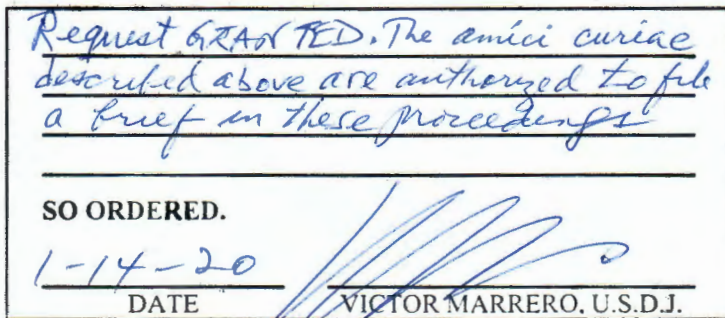 Request GRANTED. The amici curiae
described above are authorized to file
a brief in these proceedings
SO ORDERED.
1-14-20
DATE VICTOR MARRERO, U.S.D.J.